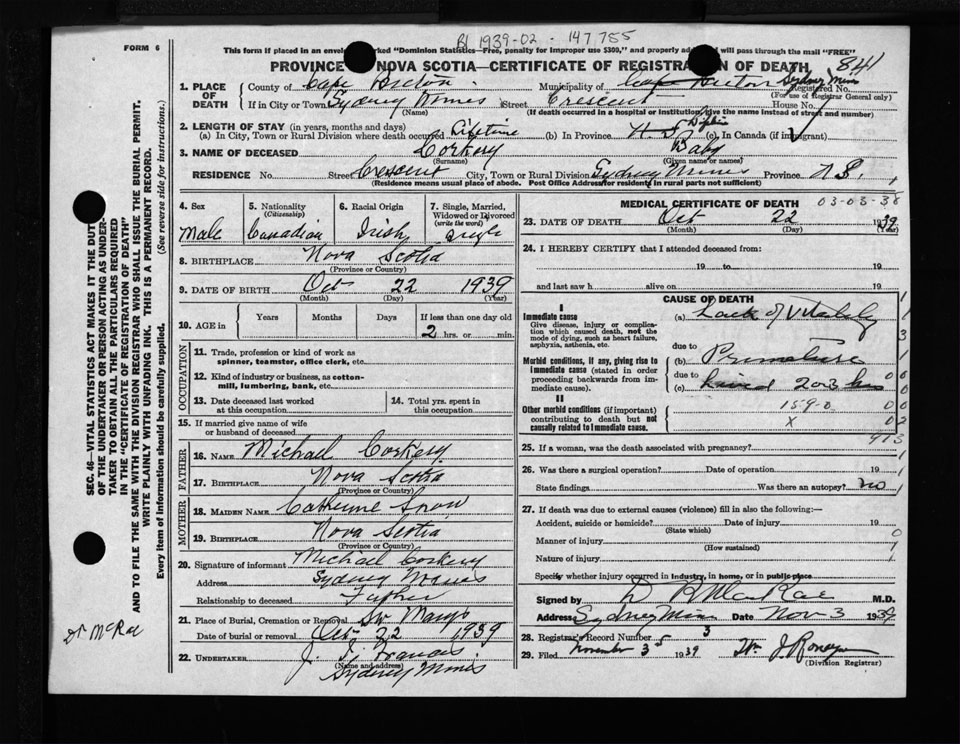 RI 1939-02-147755
FORM 6
This form if placed in an envelope marked "Dominion Statistics—Free, penalty for improper use $300," and properly addressed will pass through the mail "FREE"
PROVINCE OF NOVA SCOTIA—CERTIFICATE OF REGISTRATION OF DEATH 841
1. PLACE OF DEATH County of Cape Breton Municipality of Cape Breton Sydney Mines Registered No.
(For use of Registrar General only)
If in City or Town Sydney Mines Street Crescent House No.
(Name) (If death occurred in a hospital or institution, give the name instead of street and number)
2. LENGTH OF STAY (in years, months and days)
(a) In City, Town or Rural Division where death occurred Lifetime (b) In Province (c) In Canada (if immigrant)
3. NAME OF DECEASED Corkery Baby
(Surname) (Given name or names)
RESIDENCE No. Street Crescent City, Town or Rural Division Sydney Mines Province N.S. 1
(Residence means usual place of abode. Post Office Address for residents in rural parts not sufficient)
4. Sex 5. Nationality (Citizenship) 6. Racial Origin 7. Single, Married, Widowed or Divorced (write the word)
Male Canadian Irish Single
8. BIRTHPLACE Nova Scotia
(Province or Country)
9. DATE OF BIRTH Oct 22 1939
(Month) (Day) (Year)
10. AGE in Years Months Days If less than one day old
2 hrs. or min.
OCCUPATION
11. Trade, profession or kind of work as spinner, teamster, office clerk, etc.
12. Kind of industry or business, as cotton-mill, lumbering, bank, etc.
13. Date deceased last worked at this occupation
14. Total yrs. spent in this occupation
15. If married give name of wife or husband of deceased
FATHER
16. NAME Michael Corkery
17. BIRTHPLACE Nova Scotia
(Province or Country)
MOTHER
18. MAIDEN NAME Catherine
19. BIRTHPLACE Nova Scotia
(Province or Country)
20. Signature of informant Michael Corkery
Address Sydney Mines
Relationship to deceased Father
21. Place of Burial, Cremation or Removal
Date of burial or removal Oct 22 1939
22. UNDERTAKER J. J. Francis,
(Name and address)
Sydney Mines
MEDICAL CERTIFICATE OF DEATH 03-03-38
23. DATE OF DEATH Oct 22 1939
(Month) (Day)
24. I HEREBY CERTIFY that I attended deceased from:
19 to 19
and last saw h alive on 19
CAUSE OF DEATH 1
I
Immediate cause (a) Lack of Vitality 1
Give disease, injury or complication which caused death, not the mode of dying, such as heart failure, asphyxia, asthenia, etc.
3
due to
Morbid conditions, if any, giving rise to immediate cause (stated in order proceeding backwards from immediate cause).
(b) Premature 1
due to 00
(c) Lived 2 or 3 hrs 0
II
Other morbid conditions (if important) contributing to death but not causally related to immediate cause.
159-0 00
X 02
913
25. If a woman, was the death associated with pregnancy? 1
26. Was there a surgical operation? Date of operation 19 1
State findings Was there an autopsy? no 1
27. If death was due to external causes (violence) fill in also the following:—
Accident, suicide or homicide? Date of injury 19
(State which)
Manner of injury 0
(How sustained)
Nature of injury 1
Specify whether injury occurred in industry, in home, or in public place
Signed by D R MacRae M.D.
Address Sydney Mines Date Nov 3 1939
28. Registrar's Record Number 3
29. Filed November 3 1939
(Division Registrar)
SEC. 46—VITAL STATISTICS ACT MAKES IT THE DUTY OF THE UNDERTAKER OR PERSON ACTING AS UNDERTAKER TO OBTAIN ALL THE PARTICULARS REQUIRED IN THE "CERTIFICATE OF REGISTRATION OF DEATH"
AND TO FILE THE SAME WITH THE DIVISION REGISTRAR WHO SHALL ISSUE THE BURIAL PERMIT.
WRITE PLAINLY WITH UNFADING INK. THIS IS A PERMANENT RECORD.
Every item of information should be carefully supplied. (See reverse side for instructions.)
Dr McRae